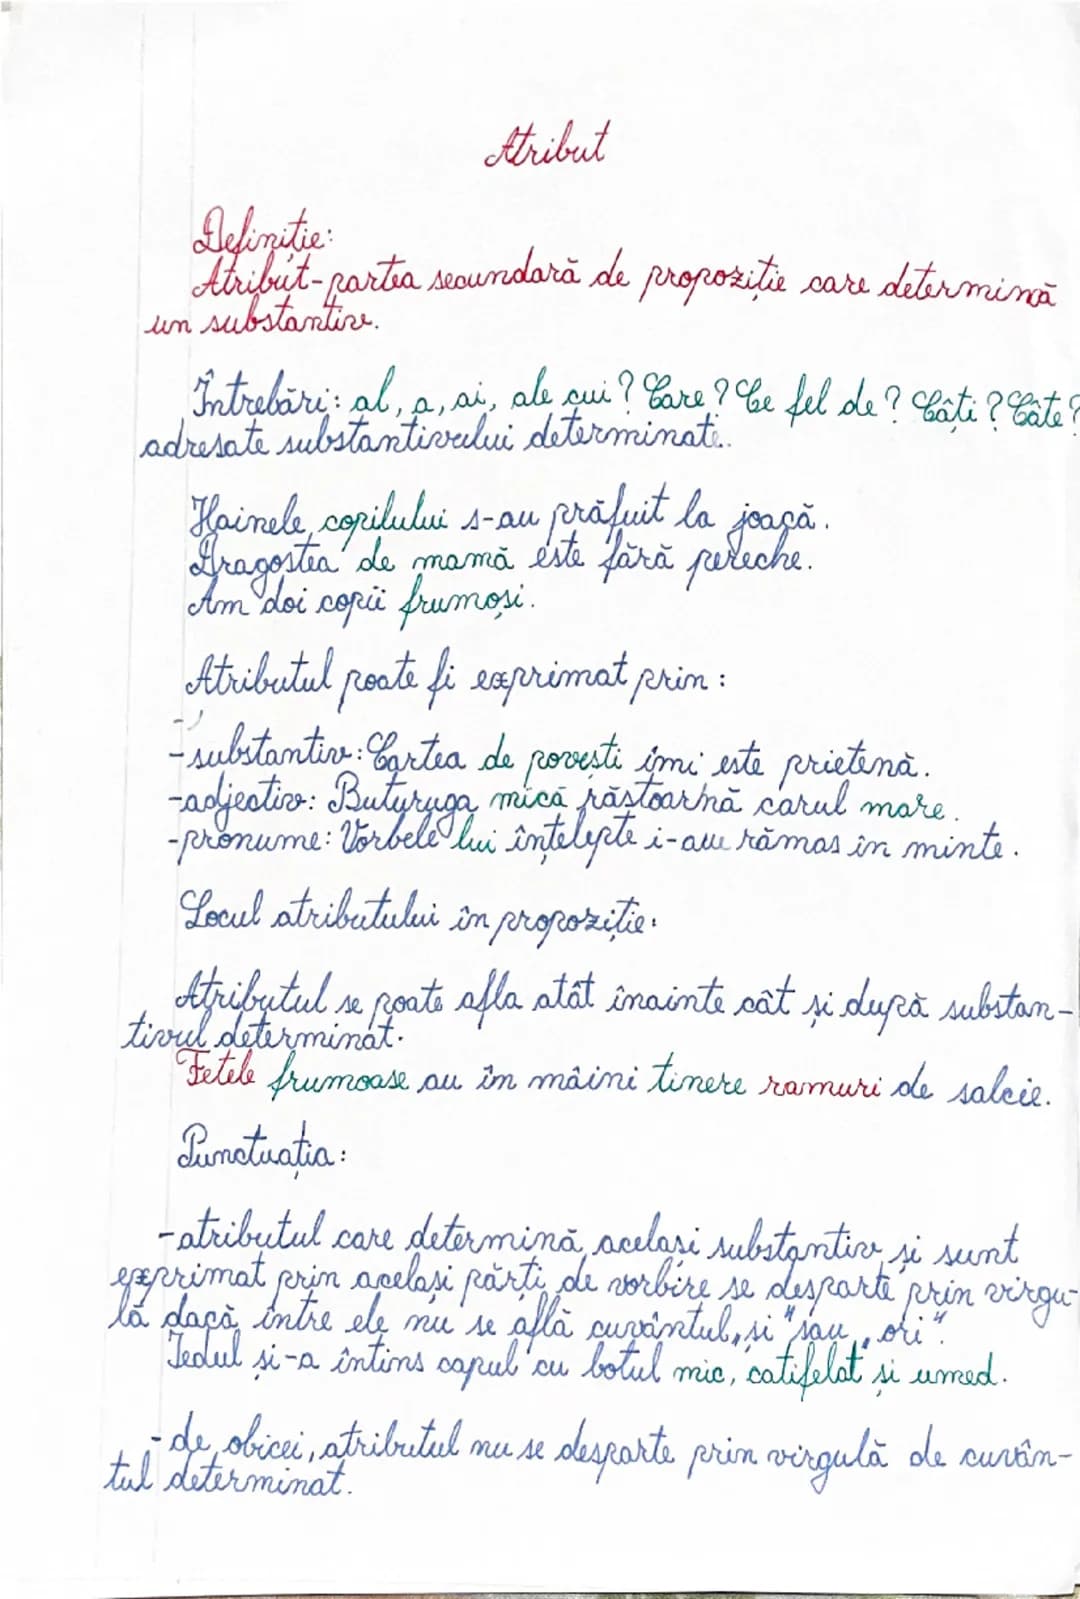 Atribut
Definiție:
Atribut-partea secundară de propoziție care determină
un substantiv.
Întrebări: al, a, ai, ale cui? Care? Ce fel de? Câți? Câte?
adresate substantivului determinat.
Hainele copilului s-au prăfuit la joacă.
Dragostea de mamă este fără pereche.
Am doi copii frumoși.
Atributul poate fi exprimat prin:
-substantiv: Cartea de povești îmi este prietenă.
-adjectiv: Buturuga mică răstoarnă carul mare.
-pronume: Vorbele lui înțelepte i-au rămas în minte.
Locul atributului în propoziție:
Atributul se poate afla atât înainte cât și după substan-
tivul determinat.
Fetele frumoase au în mâini tinere ramuri de salcie.
Punctuația:
-atributul care determină același substantiv și sunt
exprimat prin același părți de vorbire se desparte prin virgu-
lă dacă între ele nu se află cuvântul „și "sau „ori".
Iedul și-a întins capul cu botul mic, catifelat și umed.
-de obicei, atributul nu se desparte prin virgulă de cuvân-
tul determinat.